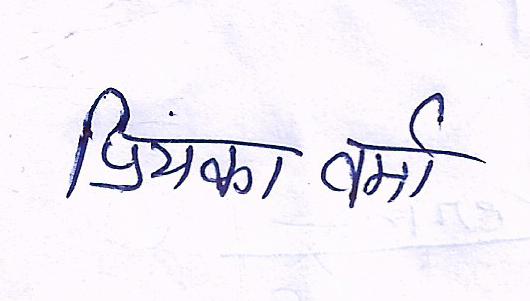 प्रियंका वर्मा